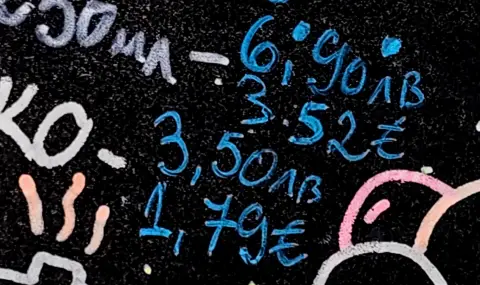 250мл – 6,90лв
3.52€
КО – 3,50лв
1,79€